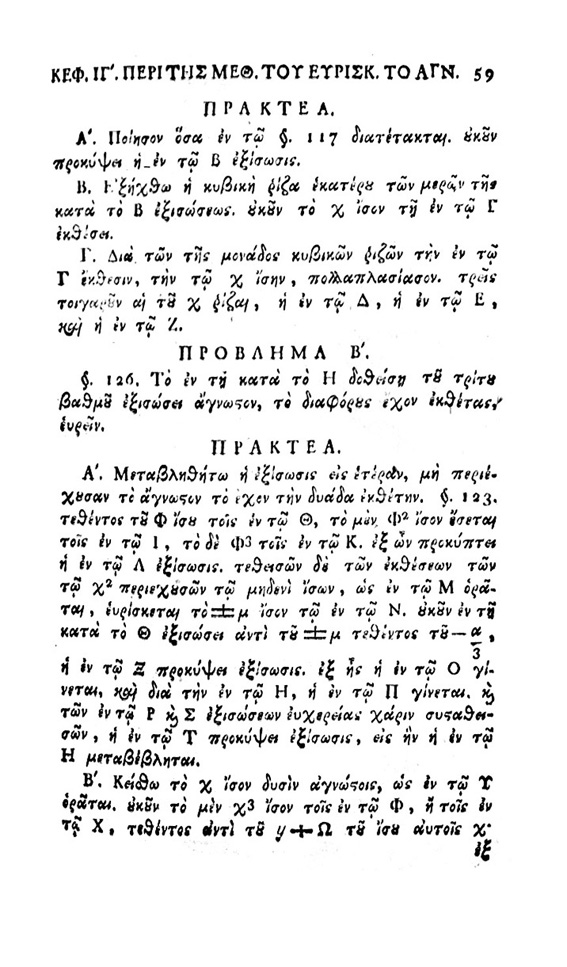 ΚΕΦ. ΙΓʹ. ΠΕΡΙ ΤΗΣ ΜΕΘ. ΤΟΥ ΕΥΡΙΣΚ. ΤΟ ΑΓΝ. 59
ΠΡΑΚΤΕΑ.
Αʹ. Ποίησον ὅσα ἐν τῷ §. 117 διατέτακται. ȣ̓κȣ͂ν
προκύψει ἡ ἐν τῷ Β ἐξίσωσις.
Β. Ἐξήχθω ἡ κυβικὴ ῥίζα ἑκατέρȣ τῶν μερῶν τῆς
κατὰ τὸ Β ἐξισώσεως. ȣ̓κȣ͂ν τὸ χ ἴσον τῇ ἐν τῷ Γ
ἐκθέσει.
Γ. Διὰ τῶν τῆς μονάδος κυβικῶν ῥιζῶν τὴν ἐν τῷ
Γ ἔκθεσιν, τὴν τῷ χ ἴσην, πολλαπλασίασον. τρεῖς
τοιγαρȣ͂ν αἱ τȣ͂ χ ῥίζαι, ἡ ἐν τῷ Δ, ἡ ἐν τῷ Ε,
καὶ ἡ ἐν τῷ Ζ.
ΠΡΟΒΛΗΜΑ Βʹ.
§. 126. Τὸ ἐν τῇ κατὰ τὸ Η δοθείσῃ τȣ͂ τρίτȣ
βαθμȣ͂ ἐξισώσει ἄγνωστον, τὸ διαφόρȣς ἔχον ἐκθέτας,
εὑρεῖν.
ΠΡΑΚΤΕΑ.
Αʹ. Μεταβληθήτω ἡ ἐξίσωσις εἰς ἑτέραν, μὴ περιέ-
χουσαν τὸ ἄγνωστον τὸ ἔχον τὴν δυάδα ἐκθέτην. §. 123.
τεθέντος τȣ͂ Φ ἴσȣ τοῖς ἐν τῷ Θ, τὸ μὲν Φ² ἴσον ἔσεται
τοῖς ἐν τῷ Ι, τὸ δὲ Φ3 τοῖς ἐν τῷ Κ. ἐξ ὧν προκύπτει
ἡ ἐν τῷ Λ ἐξίσωσις. τεθεισῶν δὲ τῶν ἐκθέσεων τῶν
τῷ χ² περιεχȣσῶν τῷ μηδενὶ ἴσων, ὡς ἐν τῷ Μ ὁρᾶ-
ται, εὑρίσκεται τὸ ±μ ἴσον τῷ ἐν τῷ Ν. ȣ̓κȣ͂ν ἐν τῇ
κατὰ τὸ Θ ἐξισώσει ἀντὶ τȣ͂ ±μ τεθέντος τȣ͂ — α/3,
ἡ ἐν τῷ Ζ προκύψει ἐξίσωσις. ἐξ ἧς ἡ ἐν τῷ Ο γί-
νεται, καὶ διὰ τὴν ἐν τῷ Η, ἡ ἐν τῷ Π γίνεται. ϗ
τῶν ἐν τῷ Ρ ϗ Σ ἐξισώσεων εὐχερείας χάριν συσταθει-
σῶν, ἡ ἐν τῷ Τ προκύψει ἐξίσωσις, εἰς ἣν ἡ ἐν τῷ
Η μεταβέβληται.
Βʹ. Κείσθω τὸ χ ἴσον δυσὶν ἀγνώστοις, ὡς ἐν τῷ Υ
ὁρᾶται. ȣ̓κȣ͂ν τὸ μὲν χ3 ἴσον τοῖς ἐν τῷ Φ, ἢ τοῖς ἐν
τῷ Χ, τεθέντος ἀντὶ τȣ͂ y+Ω τȣ͂ ἴσȣ αὐτοῖς χ·
ἐξ